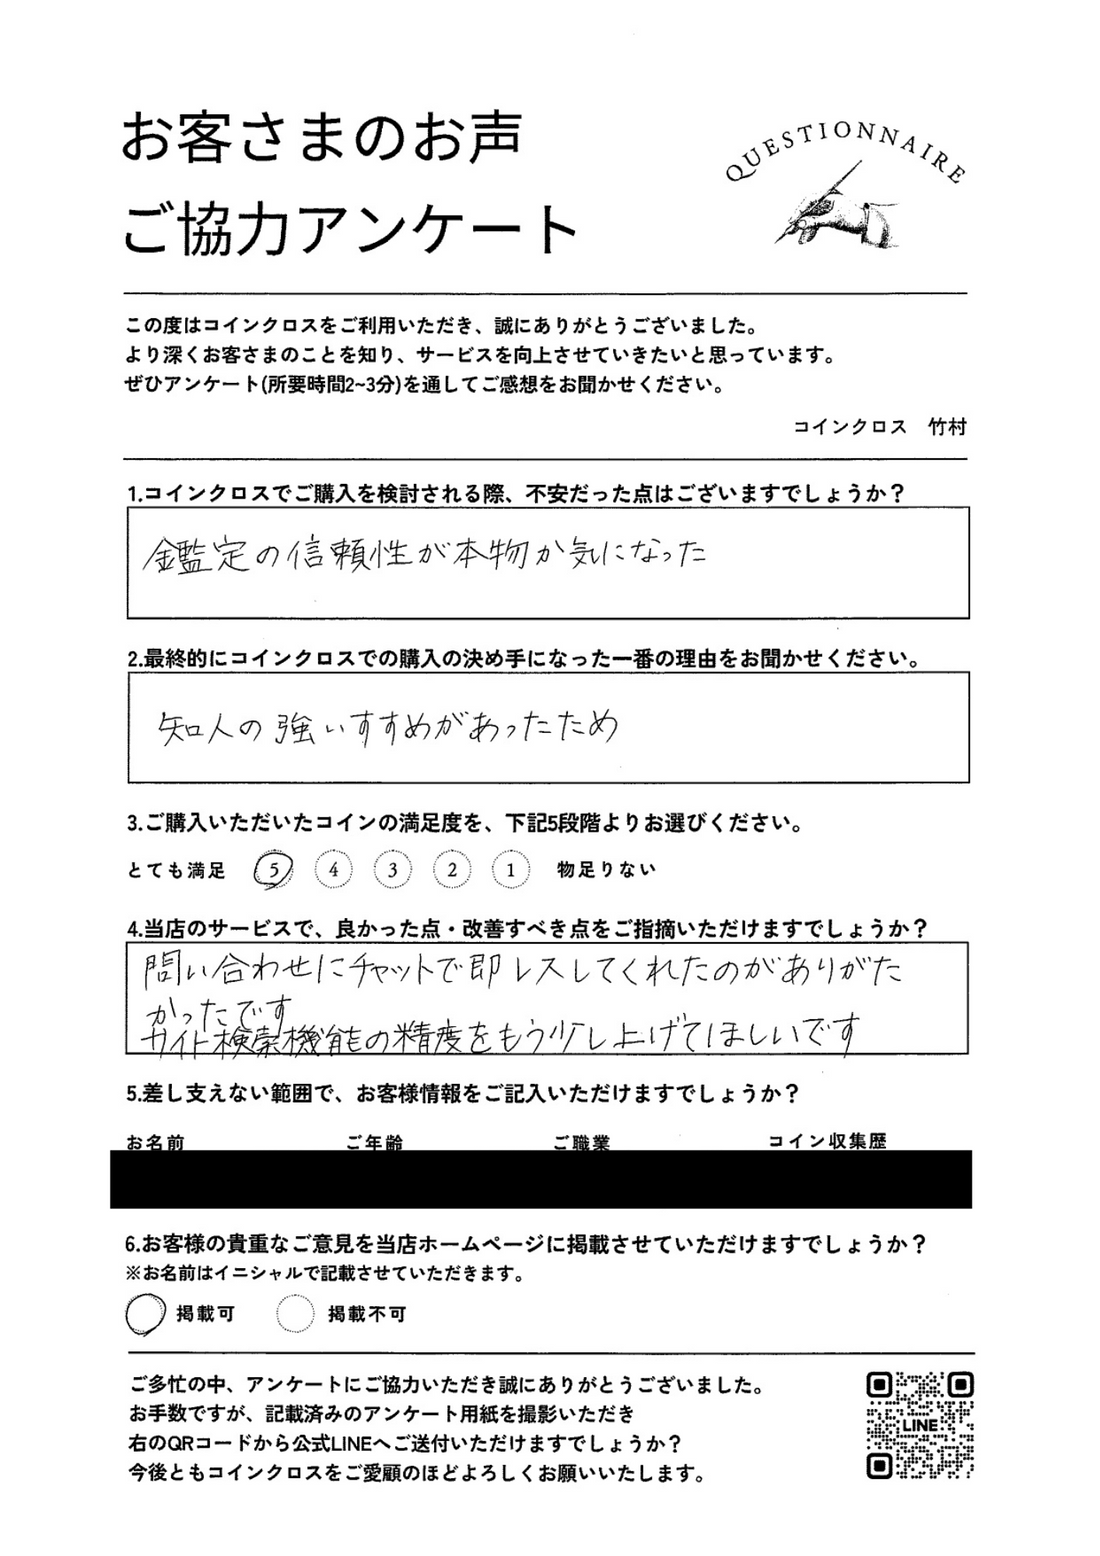 お客さまのお声
ご協力アンケート
QUESTIONNAIRE
この度はコインクロスをご利用いただき、誠にありがとうございました。
より深くお客さまのことを知り、サービスを向上させていきたいと思っています。
ぜひアンケート(所要時間2~3分)を通してご感想をお聞かせください。
コインクロス　竹村
1.コインクロスでご購入を検討される際、不安だった点はございますでしょうか？
鑑定の信頼性が本物か気になった
2.最終的にコインクロスでの購入の決め手になった一番の理由をお聞かせください。
知人の強いすすめがあったため
3.ご購入いただいたコインの満足度を、下記5段階よりお選びください。
とても満足 5 4 3 2 1 物足りない
4.当店のサービスで、良かった点・改善すべき点をご指摘いただけますでしょうか？
問い合わせにチャットで即レスしてくれたのがありがた
かったです
サイト検索機能の精度をもう少し上げてほしいです
5.差し支えない範囲で、お客様情報をご記入いただけますでしょうか？
お名前 ご年齢 ご職業 コイン収集歴
6.お客様の貴重なご意見を当店ホームページに掲載させていただけますでしょうか？
※お名前はイニシャルで記載させていただきます。
掲載可 掲載不可
ご多忙の中、アンケートにご協力いただき誠にありがとうございました。
お手数ですが、記載済みのアンケート用紙を撮影いただき
右のQRコードから公式LINEへご送付いただけますでしょうか？
今後ともコインクロスをご愛顧のほどよろしくお願いいたします。
LINE